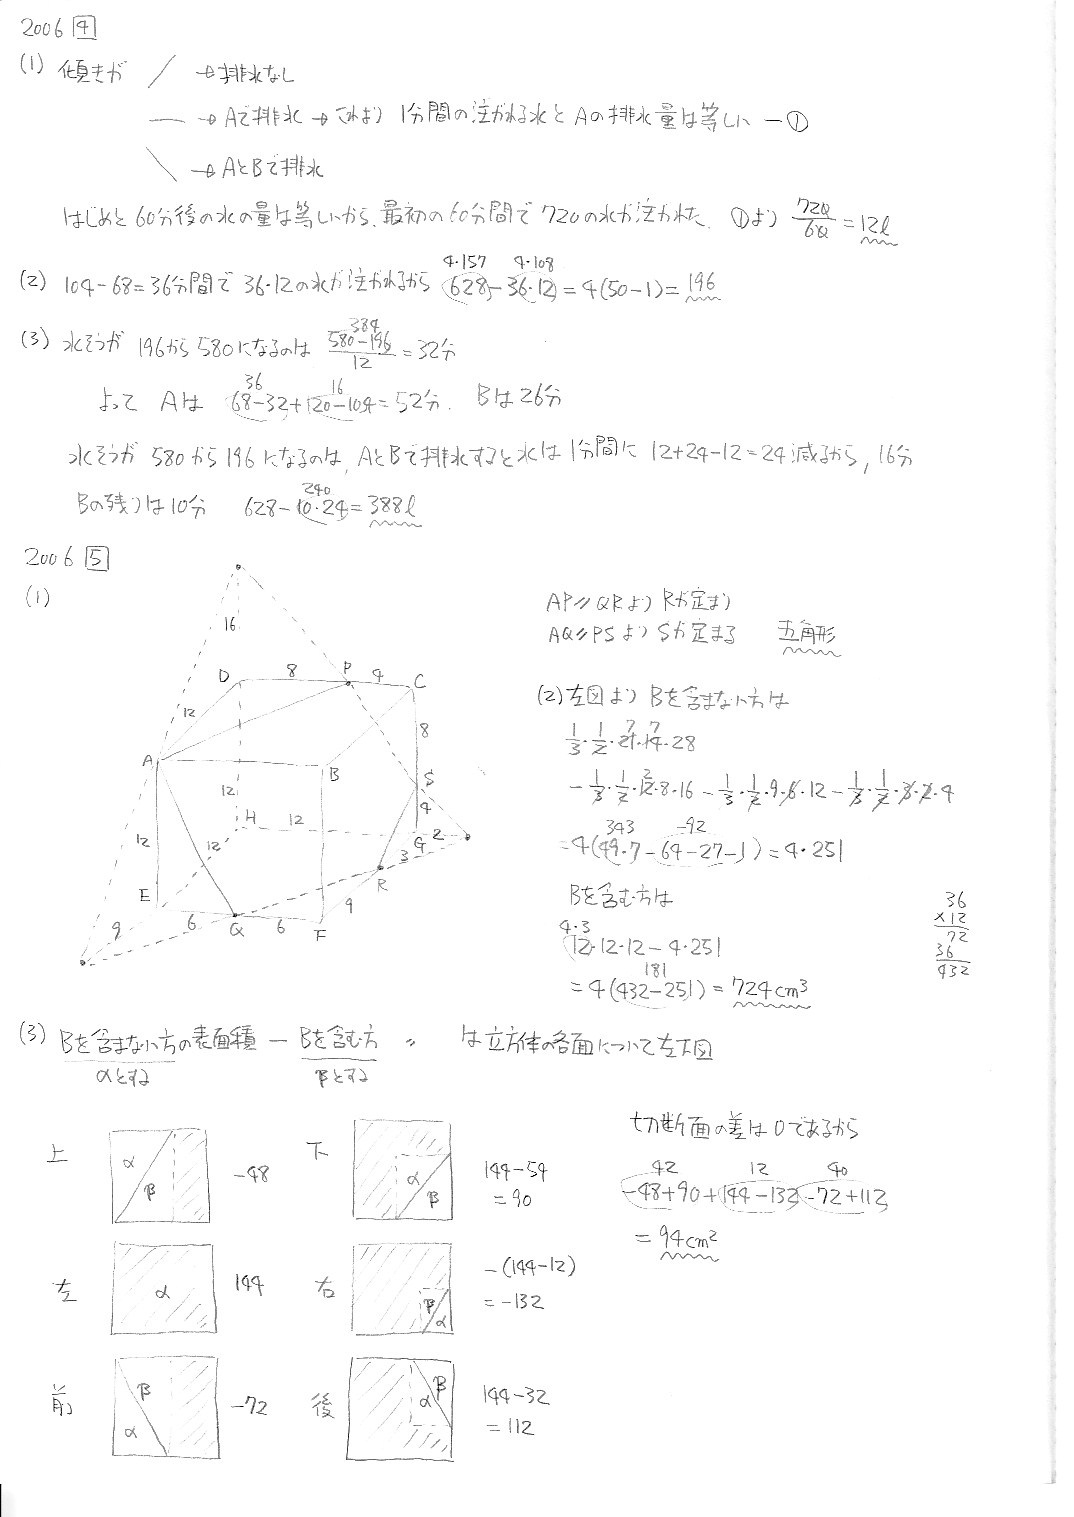 2006 4
(1) 傾きが / → 排水なし
— → Aで排水 → これより 1分間の注がれる水とAの排水量は等しい —①
\ → AとBで排水
はじめと60分後の水の量は等しいから、最初の60分間で720の水が注がれた. ①より 720/60 = 12l
4・157 4・108
(2) 104-68=36分間で 36・12の水が注がれるから 628-36・12=4(50-1)=196
384
(3) 水そうが 196から580になるのは 580-196/12 = 32分
36 16
よって Aは 68-32+120-104=52分. Bは26分
水そうが 580から196になるのは, AとBで排水すると水は1分間に 12+24-12=24減るから, 16分
240
Bの残りは10分 628-10・24=388l
2006 5
(1)
16
D 8 P 4 C
12
8
A B
S
12 H 12 4
12 12 G 2
3
E R
9 6 Q 6 F 9
AP//QRより Rが定まり
AQ//PSより Sが定まる 五角形
(2) 左図より Bを含まない方は
7 7
1/3・1/2・21・14・28
2
-1/3・1/2・12・8・16-1/3・1/2・9・6・12-1/3・1/2・3・2・4
343 -92
=4(49・7-64-27-1)=4・251
Bを含む方は
4・3
12・12・12-4・251
181
=4(432-251)=724cm³
36
×12
72
36
432
(3) Bを含まない方の表面積 — Bを含む方 〃 は立方体の各面について左下図
αとする βとする
上 α β -48
下 α β 144-54
=90
左 α 144
右 β α -(144-12)
=-132
前 β α -72
後 α β 144-32
=112
切断面の差は0であるから
42 12 40
-48+90+144-132-72+112
=94cm²